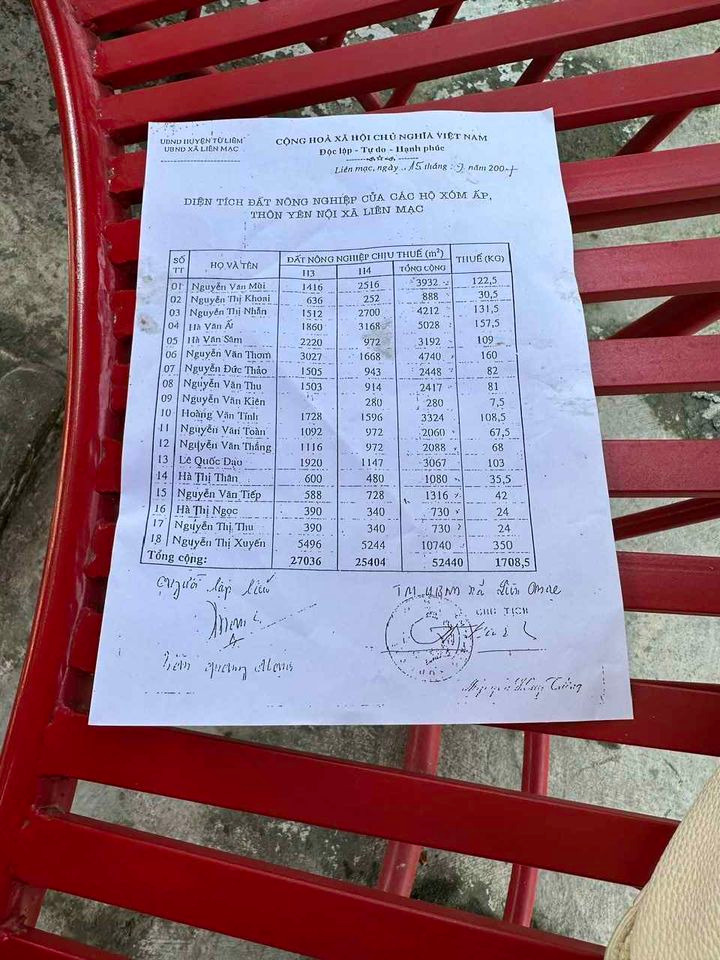 UBND HUYỆN TỪ LIÊM
UBND XÃ LIÊN MẠC
CỘNG HOÀ XÃ HỘI CHỦ NGHĨA VIỆT NAM
Độc lập - Tự do - Hạnh phúc
Liên mạc, ngày 15 tháng 9 năm 2004
DIỆN TÍCH ĐẤT NÔNG NGHIỆP CỦA CÁC HỘ XÓM ẤP,
THÔN YÊN NỘI XÃ LIÊN MẠC
SỐ TT HỌ VÀ TÊN ĐẤT NÔNG NGHIỆP CHỊU THUẾ (m²) THUẾ (KG)
H3 H4 TỔNG CỘNG
01 Nguyễn Văn Mùi 1416 2516 3932 122,5
02 Nguyễn Thị Khoai 636 252 888 30,5
03 Nguyễn Thị Nhẫn 1512 2700 4212 131,5
04 Hà Văn Ất 1860 3168 5028 157,5
05 Hà Văn Sâm 2220 972 3192 109
06 Nguyễn Văn Thơm 3027 1668 4740 160
07 Nguyễn Đức Thảo 1505 943 2448 82
08 Nguyễn Văn Thu 1503 914 2417 81
09 Nguyễn Văn Kiên 280 280 7,5
10 Hoàng Văn Tính 1728 1596 3324 108,5
11 Nguyễn Văn Toàn 1092 972 2060 67,5
12 Nguyễn Văn Thắng 1116 972 2088 68
13 Lê Quốc Đạo 1920 1147 3067 103
14 Hà Thị Thân 600 480 1080 35,5
15 Nguyễn Văn Tiếp 588 728 1316 42
16 Hà Thị Ngọc 390 340 730 24
17 Nguyễn Thị Thu 390 340 730 24
18 Nguyễn Thị Xuyến 5496 5244 10740 350
Tổng cộng: 27036 25404 52440 1708,5
Người lập biểu
TM UBND xã Liên Mạc
CHỦ TỊCH